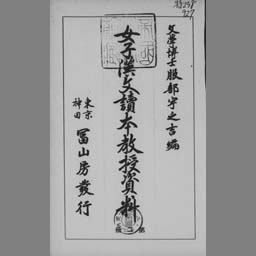 特258
927
文學博士服部宇之吉編
女子漢文讀本教授資料
東京
神田
冨山房發行